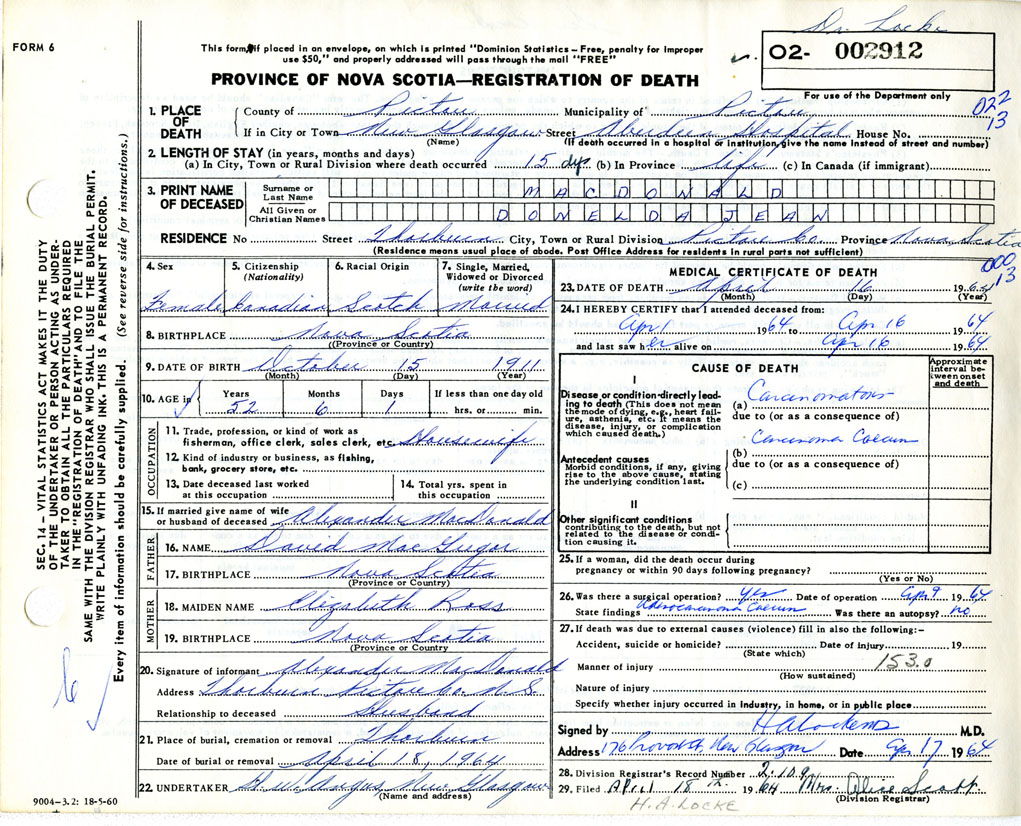 Dr. Locke
FORM 6
This form, if placed in an envelope, on which is printed "Dominion Statistics – Free, penalty for improper
use $50," and properly addressed will pass through the mail "FREE"
O2- 002912
For use of the Department only
PROVINCE OF NOVA SCOTIA—REGISTRATION OF DEATH
022
13
1. PLACE OF DEATH
County of Pictou Municipality of Pictou
If in City or Town New Glasgow Street Aberdeen Hospital House No.
(Name) (If death occurred in a hospital or institution, give the name instead of street and number)
2. LENGTH OF STAY (in years, months and days)
(a) In City, Town or Rural Division where death occurred 15 dys (b) In Province life (c) In Canada (if immigrant)
3. PRINT NAME OF DECEASED
Surname or Last Name MACDONALD
All Given or Christian Names DONELDA JEAN
RESIDENCE No Street Thorburn City, Town or Rural Division Pictou Co. Province Nova Scotia
(Residence means usual place of abode. Post Office Address for residents in rural parts not sufficient)
000
13
4. Sex 5. Citizenship (Nationality) 6. Racial Origin 7. Single, Married, Widowed or Divorced (write the word)
Female Canadian Scotch Married
8. BIRTHPLACE Nova Scotia
(Province or Country)
9. DATE OF BIRTH October 15 1911
(Month) (Day) (Year)
10. AGE in Years Months Days If less than one day old
52 6 1 hrs. or min.
OCCUPATION
11. Trade, profession, or kind of work as
fisherman, office clerk, sales clerk, etc. Housewife
12. Kind of industry or business, as fishing,
bank, grocery store, etc.
13. Date deceased last worked at this occupation
14. Total yrs. spent in this occupation
15. If married give name of wife
or husband of deceased Alexander MacDonald
FATHER
16. NAME David MacGregor
17. BIRTHPLACE Nova Scotia
(Province or Country)
MOTHER
18. MAIDEN NAME Elizabeth Ross
19. BIRTHPLACE Nova Scotia
(Province or Country
20. Signature of informant Alexander MacDonald
Address Thorburn Pictou Co. N.S.
Relationship to deceased Husband
21. Place of burial, cremation or removal Thorburn
Date of burial or removal April 18, 1964
22. UNDERTAKER H.W. Angus New Glasgow
(Name and address)
MEDICAL CERTIFICATE OF DEATH
23. DATE OF DEATH April 16 1964
(Month) (Day) (Year)
24. I HEREBY CERTIFY that I attended deceased from:
Apr 1 1964 to Apr 16 1964
and last saw her alive on Apr 16 1964
CAUSE OF DEATH
Approximate interval between onset and death
I
Disease or condition directly leading to death (This does not mean
the mode of dying, e.g., heart failure, asthenia, etc. It means the
disease, injury, or complication which caused death.)
(a) Carcinomatosis
due to (or as a consequence of)
Carcinoma Caecum
Antecedent causes
Morbid conditions, if any, giving rise to the above cause, stating
the underlying condition last.
(b)
due to (or as a consequence of)
(c)
II
Other significant conditions
contributing to the death, but not related to the disease or condition causing it.
25. If a woman, did the death occur during
pregnancy or within 90 days following pregnancy?
(Yes or No)
26. Was there a surgical operation? yes Date of operation Apr. 9 1964
State findings Adenocarcinoma Caecum Was there an autopsy? no
27. If death was due to external causes (violence) fill in also the following:–
Accident, suicide or homicide? Date of injury 19
(State which)
153.0
Manner of injury
(How sustained)
Nature of injury
Specify whether injury occurred in industry, in home, or in public place
Signed by H A Locke MD M.D.
Address 176 Provost St, New Glasgow Date Apr 17 1964
28. Division Registrar's Record Number 2-109
29. Filed April 18th 1964 Mrs. Alice Scott
(Division Registrar)
H.A. LOCKE
SEC. 14 – VITAL STATISTICS ACT MAKES IT THE DUTY
OF THE UNDERTAKER OR PERSON ACTING AS UNDER-
TAKER TO OBTAIN ALL THE PARTICULARS REQUIRED
IN THE "REGISTRATION OF DEATH" AND TO FILE THE
SAME WITH THE DIVISION REGISTRAR WHO SHALL ISSUE THE BURIAL PERMIT.
WRITE PLAINLY WITH UNFADING INK. THIS IS A PERMANENT RECORD.
Every item of information should be carefully supplied. (See reverse side for instructions.)
6
9004–3.2: 18-5-60